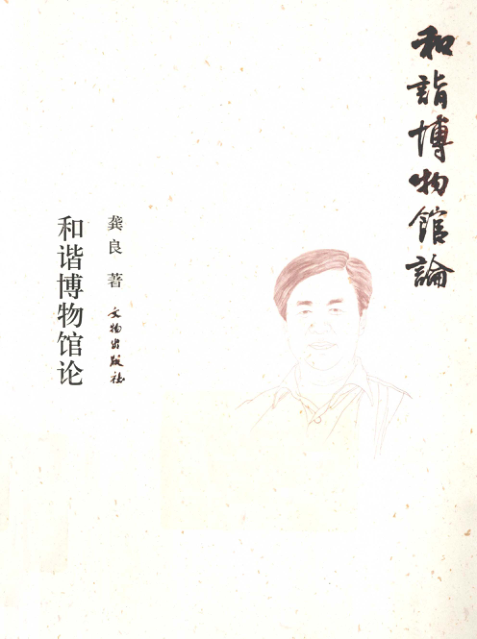 和諧博物館論
龚良 著
文物出版社
和谐博物馆论